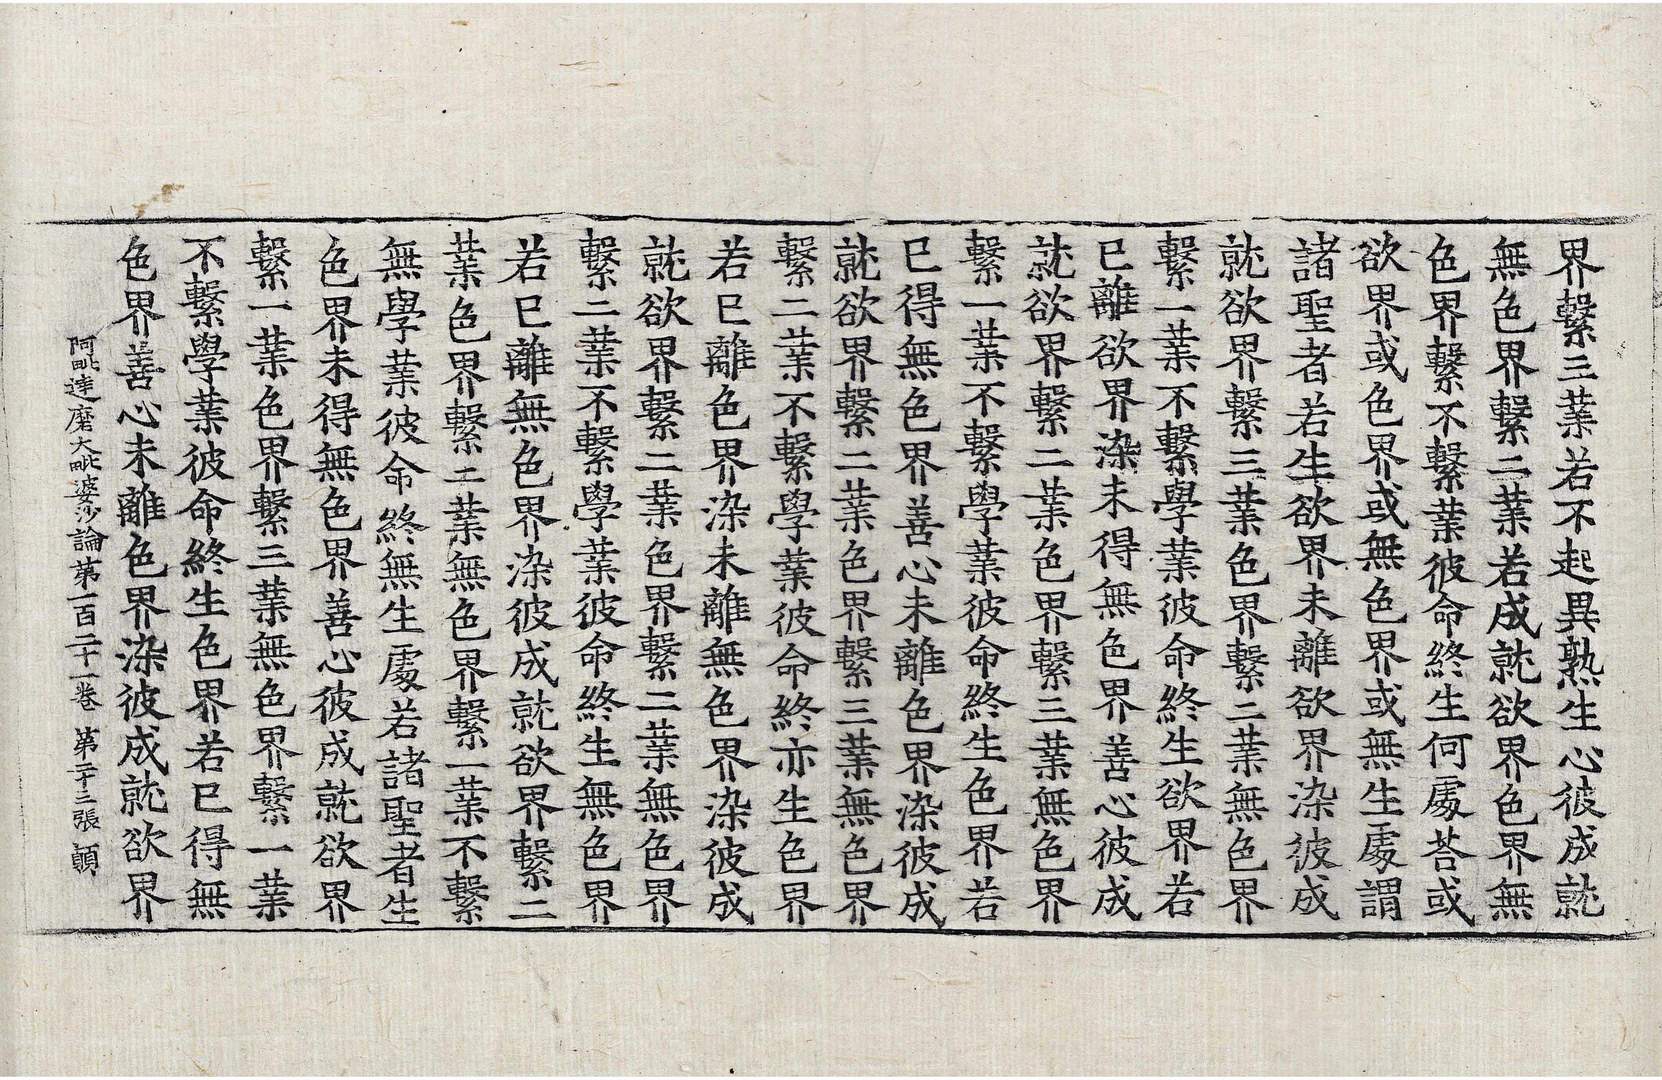 界繫三業若不起異熟生心彼成就
無色界繫二業若成就欲界色界無
色界繫不繫業彼命終生何處荅或
欲界或色界或無色界或無生處謂
諸聖者若生欲界未離欲界染彼成
就欲界繫三業色界繫二業無色界
繫一業不繫學業彼命終生欲界若
已離欲界染未得無色界善心彼成
就欲界繫二業色界繫三業無色界
繫一業不繫學業彼命終生色界若
已得無色界善心未離色界染彼成
就欲界繫二業色界繫三業無色界
繫二業不繫學業彼命終亦生色界
若已離色界染未離無色界染彼成
就欲界繫二業色界繫二業無色界
繫二業不繫學業彼命終生無色界
若已離無色界染彼成就欲界繫二
業色界繫二業無色界繫一業不繫
無學業彼命終無生處若諸聖者生
色界未得無色界善心彼成就欲界
繫一業色界繫三業無色界繫一業
不繫學業彼命終生色界若已得無
色界善心未離色界染彼成就欲界
阿毗達磨大毗婆沙論第一百二十一卷 第二十三張 顗